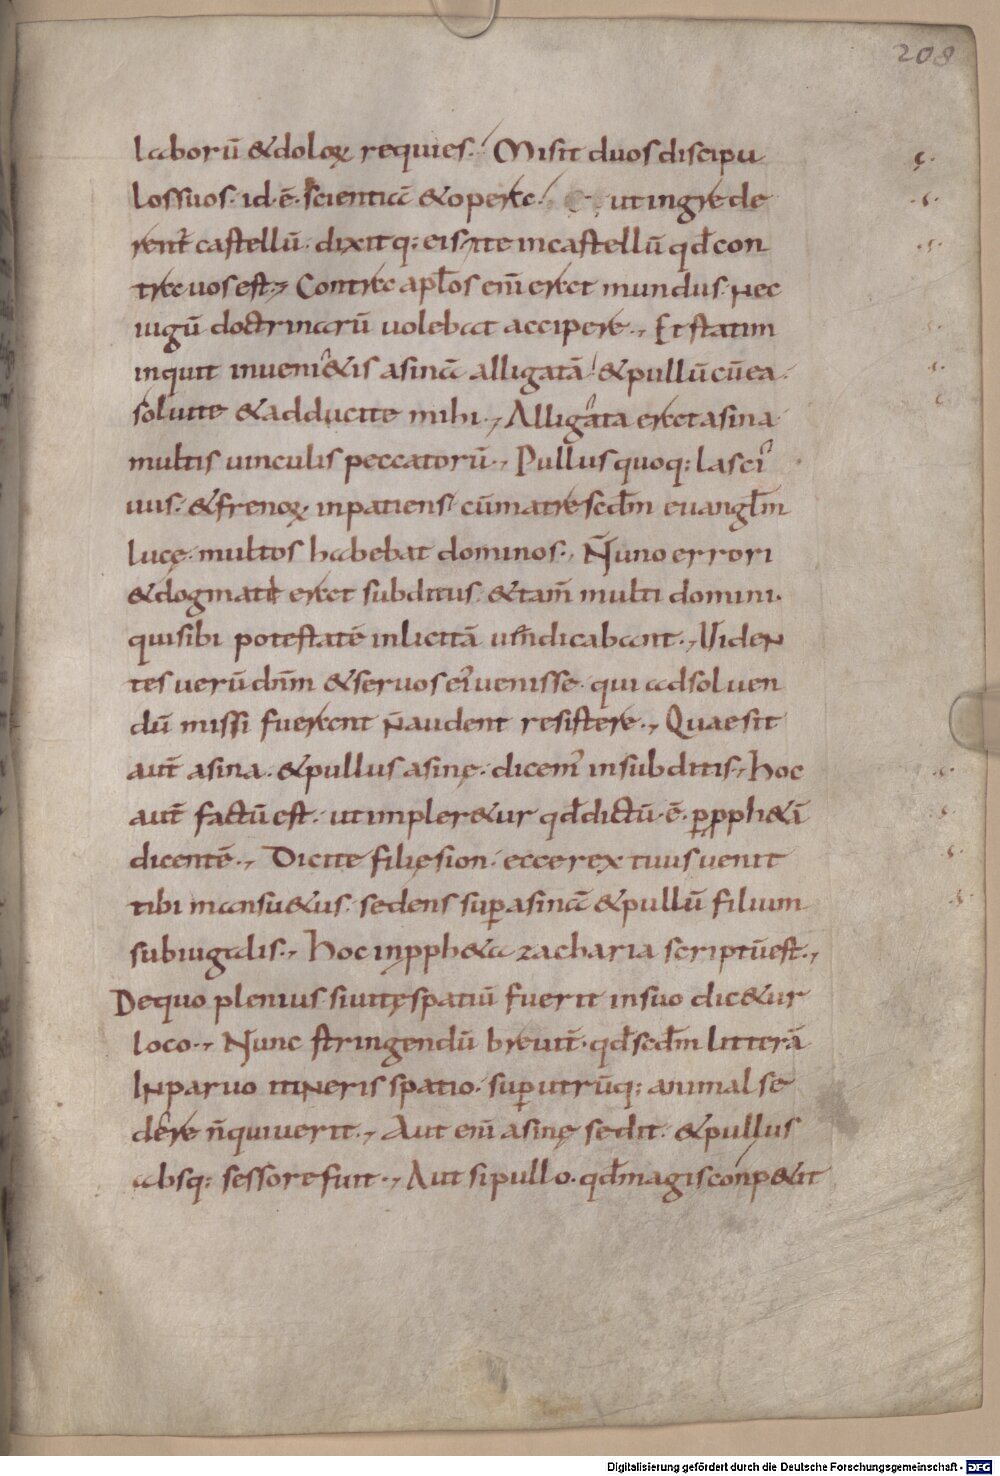 208
laborū &doloꝝ requies. Misit duos discipu
los suos. id.ē. scientiā & opera. ut ingrede
rent̄ castellū. dixitq; eis ite in castellū qđ con
tra uos est. Contra apl̄os eni̅ erat mundus. nec
iugū doctrinarū uolebat accipere. Et statim
inquit inueni&is asinā alligatā & pullū cū ea.
soluite & adducite mihi. Alligata erat asina
multis uinculis peccatorū. Pullus quoq; lasci
uus. & frenoꝝ inpatiens cū matre scđm euangl̄m
lucę. multos habebat dominos. N̄ uno errori
& dogmati erat subditus. & tam̄ multi domini.
qui sibi potestatē inlicitā uendicabant. Uiden
tes uerū dn̄m & seruos ei' uenisse. qui ad soluen
dū missi fuerant n̄ audent resistere. Quae sit
aut̄ asina. & pullus asinę. dicem' in subditis. Hoc
aut̄ factū est. ut impler&ur qđ dictū.ē. ꝑ ꝓph&ā
dicentē. Dicite filię sion. ecce rex tuus uenit
tibi mansu&us. sedens suꝑ asinā & pullū filium
subiugalis. Hoc in ꝓph&a zacharia scriptū est.
De quo plenius si uitę spatiū fuerit in suo dic&ur
loco. Nunc stringendū breuit̄. qđ scđm litterā
In paruo itineris spatio. suꝑ utrūq; animal se
dere n̄ quiuerit. Aut eni̅ asinę sedit. & pullus
absq; sessore fuit. Aut si pullo. qđ magis conp&it
Digitalisierung gefördert durch die Deutsche Forschungsgemeinschaft - DFG